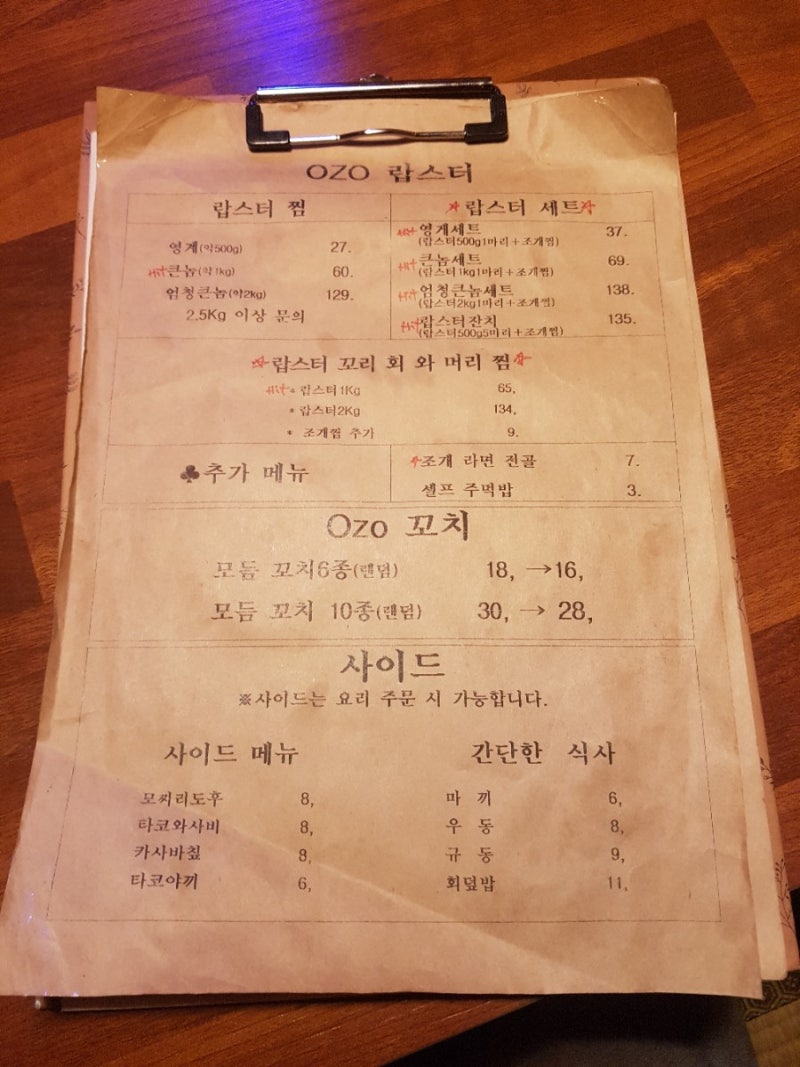 OZO 랍스터
랍스터 찜
영계(약500g) 27.
Hit 큰놈(약1kg) 60.
엄청큰놈(약2kg) 129.
2.5Kg 이상 문의
☆랍스터 세트☆
Hit 영계세트 37.
(랍스터500g1마리+조개찜)
Hit 큰놈세트 69.
(랍스터1kg1마리+조개찜)
Hit 엄청큰놈세트 138.
(랍스터2kg1마리+조개찜)
Hit 랍스터잔치 135.
(랍스터500g5마리+조개찜)
☆랍스터 꼬리 회 와 머리 찜☆
Hit * 랍스터1Kg 65,
* 랍스터2Kg 134,
* 조개찜 추가 9.
♣추가 메뉴
☆조개 라면 전골 7.
셀프 주먹밥 3.
Ozo 꼬치
모듬 꼬치6종(랜덤) 18, →16,
모듬 꼬치 10종(랜덤) 30, → 28,
사이드
※사이드는 요리 주문 시 가능합니다.
사이드 메뉴
모찌리도후 8,
타코와사비 8,
카사바칩 8,
타코야끼 6,
간단한 식사
마 끼 6,
우 동 8,
규 동 9,
회덮밥 11,